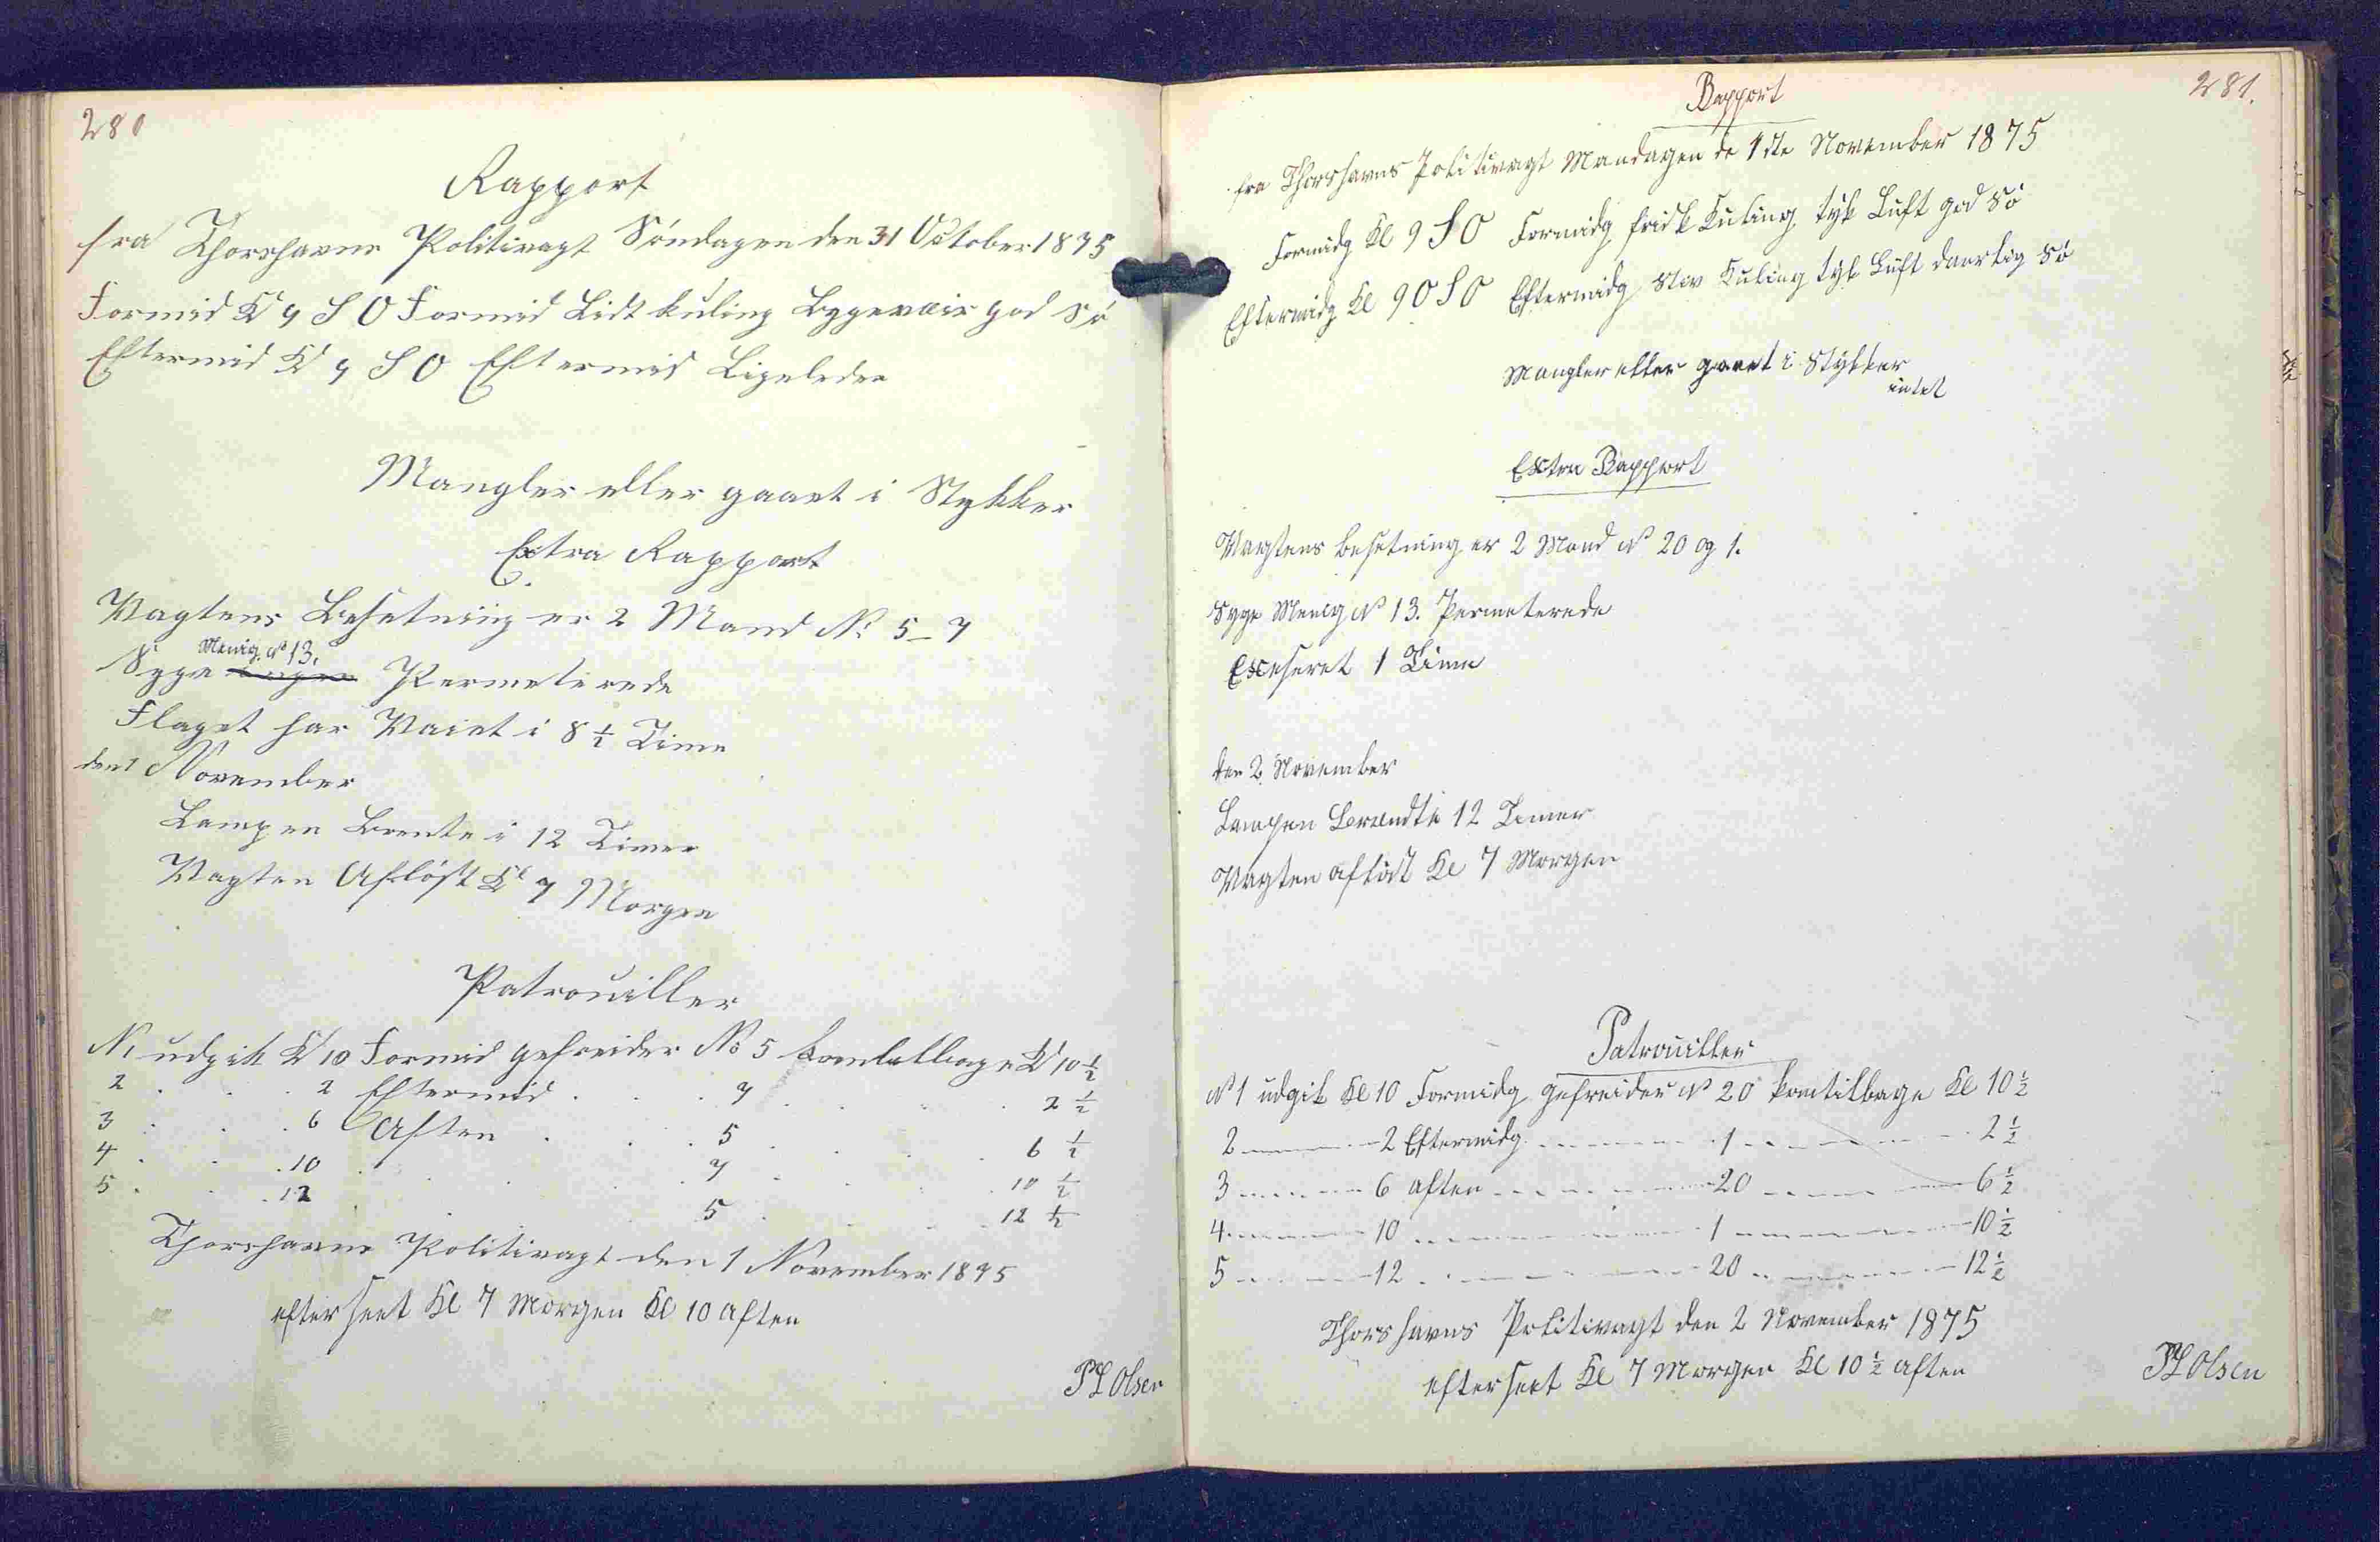 280
Rapport
fra Thorshavns Politivagt Søndagen den 31 October 1875
Formid Kl 9 S O Formid Lidt kuling Bygevair god Sø
Eftermid Kl 9 S O Eftermid Ligeledes
Mangler eller gaaet i Stykker
Extra Rapport
Vagtens Besetning er 2 Mand No 5 - 7
Menig No 13.
Syge Ingen Permeterede
Flaget har Vaiet i 8 ½ Time
den 1 November
Lampen Brente i 12 Timer
Vagten Afløst Kl 7 Morgen
Patrouiller
N1 udgik Kl 10 Formid gefreider No 5 komtilbage Kl 10 ½
2 . . . 2 Eftermid . . . 7 . . . 2 ½
3 . . . 6 Aften . . . 5 . . . 6 ½
4 . . . 10 . . . 7 . . . 10 ½
5 . . . 12 . . . 5 . . . 12 ½
Thorshavns Politivagt den 1 November 1875
efterseet Kl 7 Morgen Kl 10 Aften
PL Olsen
281.
Rapport
fra Thorshavns Politivagt Mandagen de 1ste November 1875
Formidg Kl 9 S O Formidg frisk Kuling tyk Luft god Sø
Eftermidg Kl 9 O S O Eftermidg Stiv Kuling tyk Luft daarlig Sø
Mangler eller gaaet i Stykker
intet
Extra Rapport
Vagtens Besetning er 2 Mand No 20 og 1.
Syge Menig No 13. Permeterede
Exeseret 1 Time
den 2 November
Lampen Brændte 12 Timer
Vagten afløst Kl 7 Morgen
Patrouiller
No 1 udgik Kl 10 Formidg gefreider No 20 komtilbage Kl 10 ½
2 - - - 2 Eftermidg - - - 1 - - - 2 ½
3 - - - 6 Aften - - - 20 - - - 6 ½
4 - - - 10 - - - 1 - - - 10 ½
5 - - - 12 - - - 20 - - - 12 ½
Thorshavns Politivagt den 2 November 1875
efterseet Kl 7 Morgen Kl 10 ½ Aften
PL Olsen